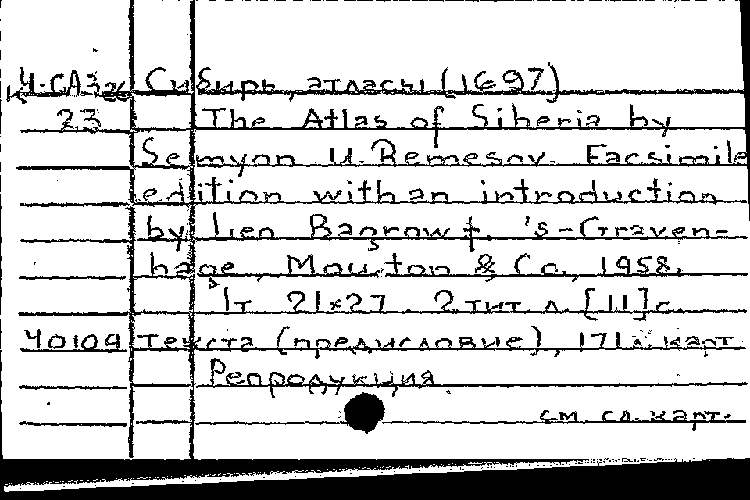 Сибирь, атласы (1697)
23 The Atlas of Siberia by
Semyon U. Remesov. Facsimile
edition with an introduction
by Leo Bagrow †. 's-Graven-
hage, Mouton & Co., 1958.
1т. 21×27. 2 тит. л. [11] с.
40109 текста (предисловие), 171 л. карт.
Репродукция.
см. сл. карт.